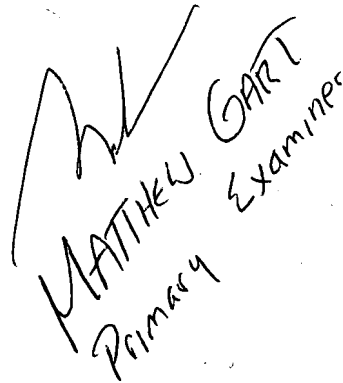 MATTHEW GART
Primary Examiner